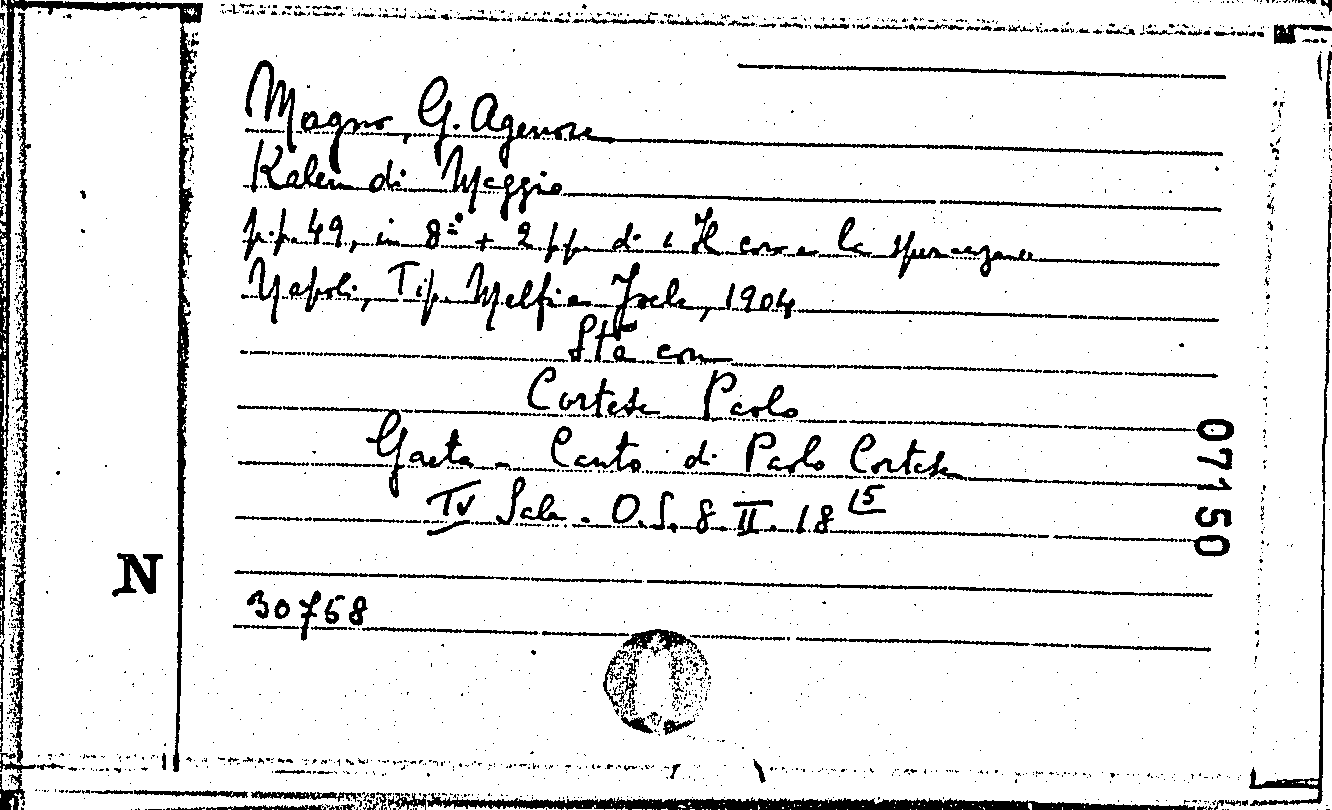 Magno, G. Agenore
Kalen di Maggio
pp. 49, in 8° + 2 pp. di
Napoli, Tip. Melfi e Joele, 1904
Sta con
Cortese Paolo
Gaeta - Canto di Paolo Cortese
IV Sala. O.S. 8. II. 18 15
07150
N
30758